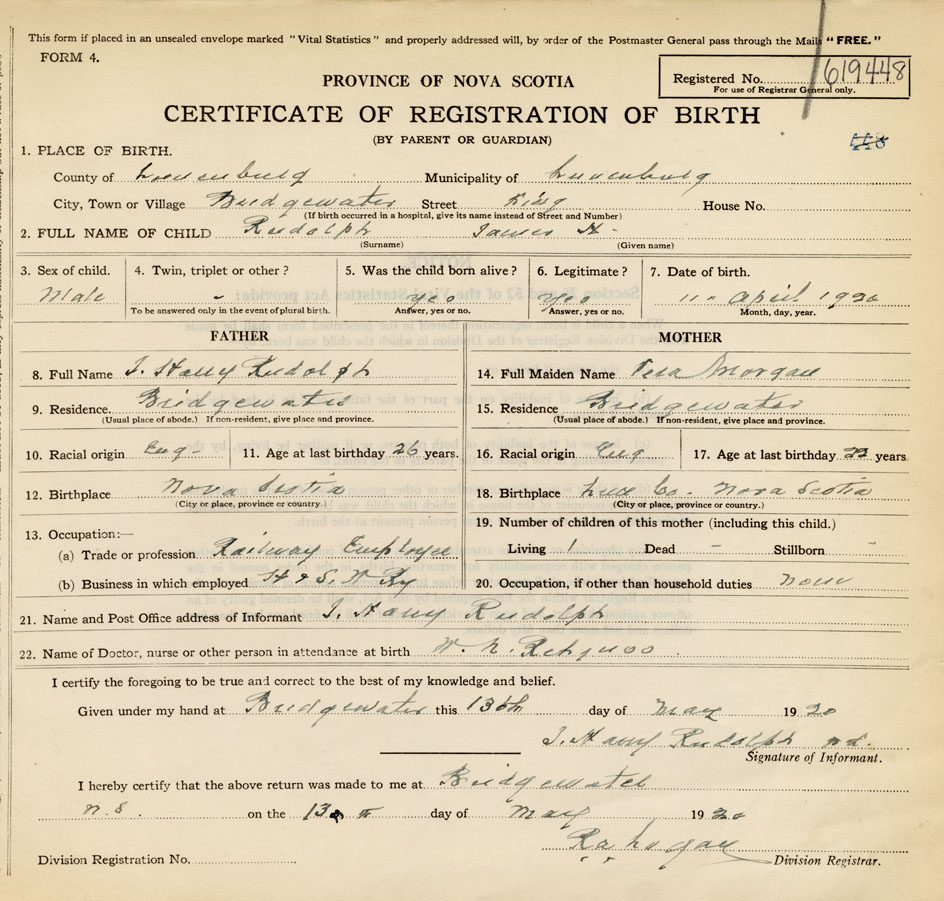 This form if placed in an unsealed envelope marked "Vital Statistics" and properly addressed will, by order of the Postmaster General pass through the Mails "FREE."
FORM 4.
PROVINCE OF NOVA SCOTIA
Registered No. 619448
For use of Registrar General only.
CERTIFICATE OF REGISTRATION OF BIRTH
(BY PARENT OR GUARDIAN)
448
1. PLACE OF BIRTH.
County of Lunenburg Municipality of Lunenburg
City, Town or Village Bridgewater Street King House No.
(If birth occurred in a hospital, give its name instead of Street and Number)
2. FULL NAME OF CHILD Rudolph James H.
(Surname) (Given name)
3. Sex of child. 4. Twin, triplet or other? 5. Was the child born alive? 6. Legitimate? 7. Date of birth.
Male - yes yes 11" April 1920
To be answered only in the event of plural birth. Answer, yes or no. Answer, yes or no. Month, day, year.
FATHER MOTHER
8. Full Name J. Harry Rudolph 14. Full Maiden Name Vera Morgan
9. Residence. Bridgewater 15. Residence Bridgewater
(Usual place of abode.) If non-resident, give place and province. (Usual place of abode.) If non-resident, give place and province.
10. Racial origin Eng- 11. Age at last birthday 26 years. 16. Racial origin Eng 17. Age at last birthday 22 years.
12. Birthplace Nova Scotia 18. Birthplace Lun Co. Nova Scotia
(City or place, province or country.) (City or place, province or country.)
13. Occupation:— 19. Number of children of this mother (including this child.)
(a) Trade or profession Railway Employee Living 1 Dead - Stillborn -
(b) Business in which employed H & S. W Ry 20. Occupation, if other than household duties none
21. Name and Post Office address of Informant J. Harry Rudolph
22. Name of Doctor, nurse or other person in attendance at birth W. N. Rehfuss
I certify the foregoing to be true and correct to the best of my knowledge and belief.
Given under my hand at Bridgewater this 13th day of May 1920
J. Harry Rudolph
Signature of Informant.
I hereby certify that the above return was made to me at Bridgewater
N.S. on the 13 day of May 1920
Logan
Division Registration No. Division Registrar.